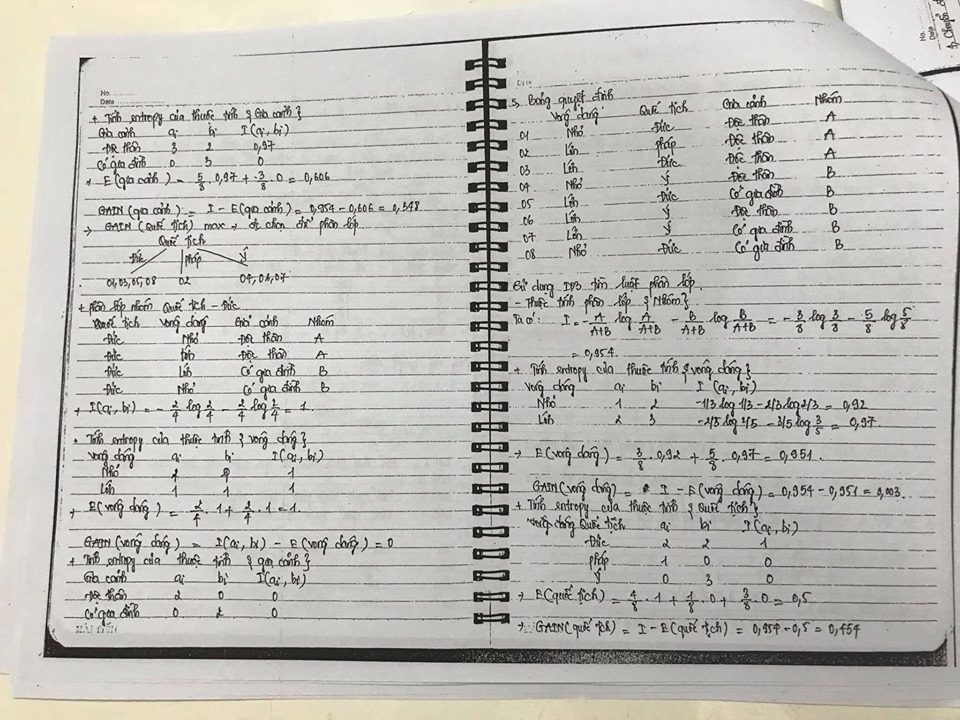 No. ..........
Date ..................
+ Tính entropy của thuộc tính {Gia cảnh}
Gia cảnh ai bi I(ai, bi)
Độc thân 3 2 0,97
Có gia đình 0 3 0
→ E(gia cảnh) = 5/8 . 0,97 + 3/8 . 0 = 0,606
GAIN(gia cảnh) = I - E(gia cảnh) = 0,954 - 0,606 = 0,348
→ GAIN(Quốc tịch) max → đc chọn để phân lớp.
Quốc Tịch
Đức Pháp Ý
01,03,05,08 02 04,06,07
+ Phân lớp nhóm Quốc tịch - Đức
Quốc tịch Vong dáng Gia cảnh Nhóm
Đức Nhỏ Độc thân A
Đức Lớn Độc thân A
Đức Lớn Có gia đình B
Đức Nhỏ Có gia đình B
+ I(ai, bi) = - 2/4 log 2/4 - 2/4 log 2/4 = 1.
+ Tính entropy của thuộc tính {Vong dáng}
Vong dáng ai bi I(ai, bi)
Nhỏ 1 1
Lớn 1 1 1
→ E(vong dáng) = 2/4 . 1 + 2/4 . 1 = 1.
GAIN(vong dáng) = I(ai, bi) - E(vong dáng) = 0
+ Tính entropy của thuộc tính {gia cảnh}
Gia cảnh ai bi I(ai, bi)
Độc thân 2 0 0
Có gia đình 0 2 0
Date
5. Bảng quyết định
Vong dáng Quốc tịch Gia cảnh Nhóm
01 Nhỏ Đức Độc thân A
02 Lớn Pháp Độc thân A
03 Lớn Đức Độc thân A
04 Nhỏ Ý Độc thân B
05 Lớn Đức Có gia đình B
06 Lớn Ý Độc thân B
07 Lớn Ý Có gia đình B
08 Nhỏ Đức Có gia đình B
Sử dụng ID3 tìm luật phân lớp.
- Thuộc tính phân lớp {Nhóm}
Ta có: I = - A/A+B log A/A+B - B/A+B log B/A+B = - 3/8 log 3/8 - 5/8 log 5/8
= 0,954.
+ Tính entropy của thuộc tính {vong dáng}
Vong dáng ai bi I(ai, bi)
Nhỏ 1 2 -1/3 log 1/3 - 2/3 log 2/3 = 0,92
Lớn 2 3 -2/5 log 2/5 - 3/5 log 3/5 = 0,97.
→ E(vong dáng) = 3/8 . 0,92 + 5/8 . 0,97 = 0,951.
GAIN(vong dáng) = I - E(vong dáng) = 0,954 - 0,951 = 0,003.
+ Tính entropy của thuộc tính {Quốc tịch}
Quốc tịch ai bi I(ai, bi)
Đức 2 2 1
Pháp 1 0 0
Ý 0 3 0
→ E(quốc tịch) = 4/8 . 1 + 1/8 . 0 + 3/8 . 0 = 0,5
→ GAIN(quốc tịch) = I - E(quốc tịch) = 0,954 - 0,5 = 0,454
No.
Date